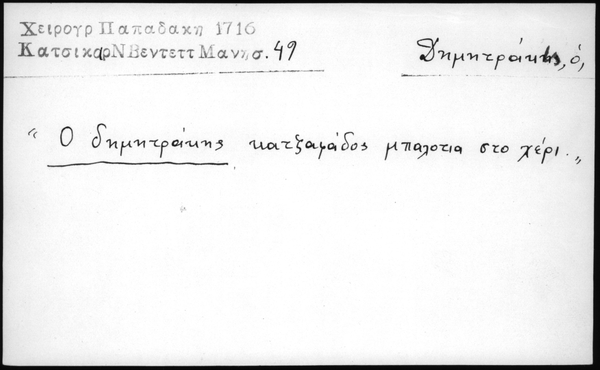 Χειρογρ Παπαδακη 1716
Κατσικαρ Ν Βεντεττ Μανησ. 49
Δημητράκης, ὁ,
" Ο δημητράκης κατζαμάδος μπαλοτια στο χέρι. "